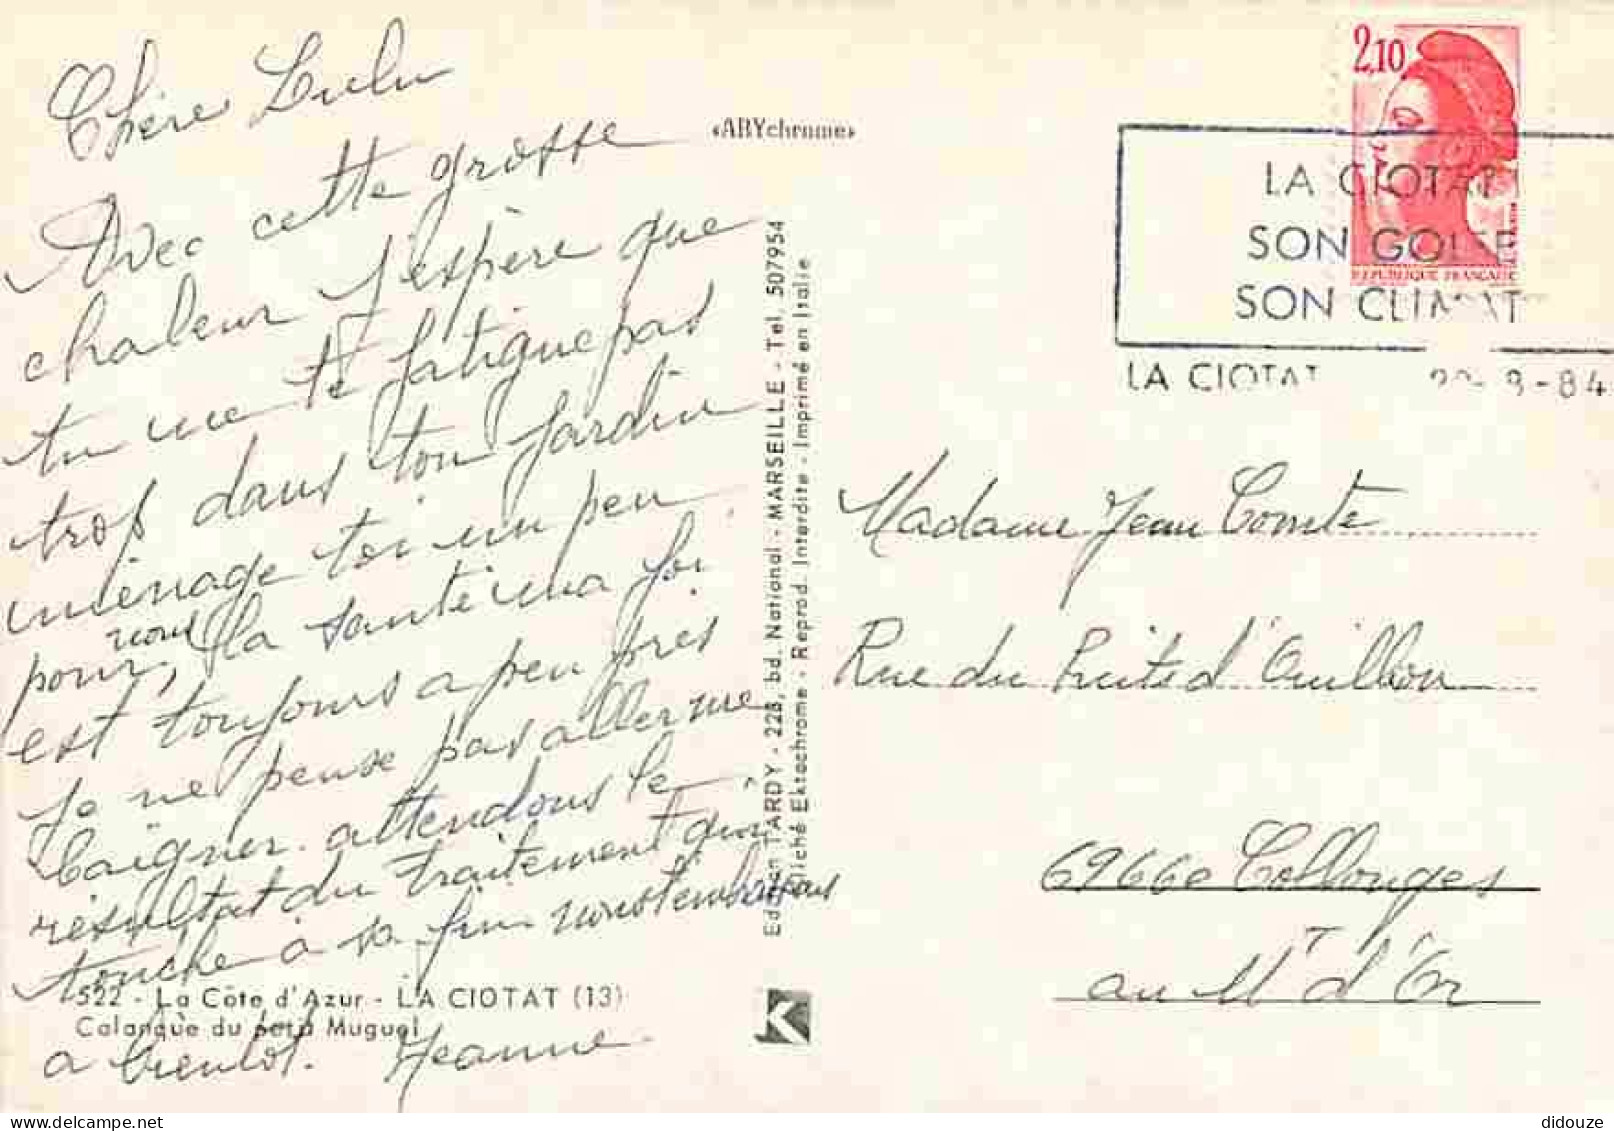 Chère Lulu
Avec cette grosse
chaleur j'espère que
tu ne te fatigue pas
trop dans ton jardin
ménage toi un peu
pour nous, la santé ma foi
est toujours a peu près
je ne pense pas aller me
baigner. attendons le
résultat du traitement qui
touche à sa fin nous t'embrassons
a bientôt. Jeanne
522 - La Côte d'Azur - LA CIOTAT (13)
Calanque du petit Muguel
«ARYchrome»
Edition TARDY - 228, bd. National - MARSEILLE - Tel. 507954
Cliché Ektachrome - Reprod. Interdite - Imprimé en Italie
K
2,10
REPUBLIQUE FRANÇAISE
LA CIOTAT
SON GOLFE
SON CLIMAT
LA CIOTAT -84
Madame Jean Comte
Rue du Puits d'
69660 Collonges
au Mt d'Or
didouze